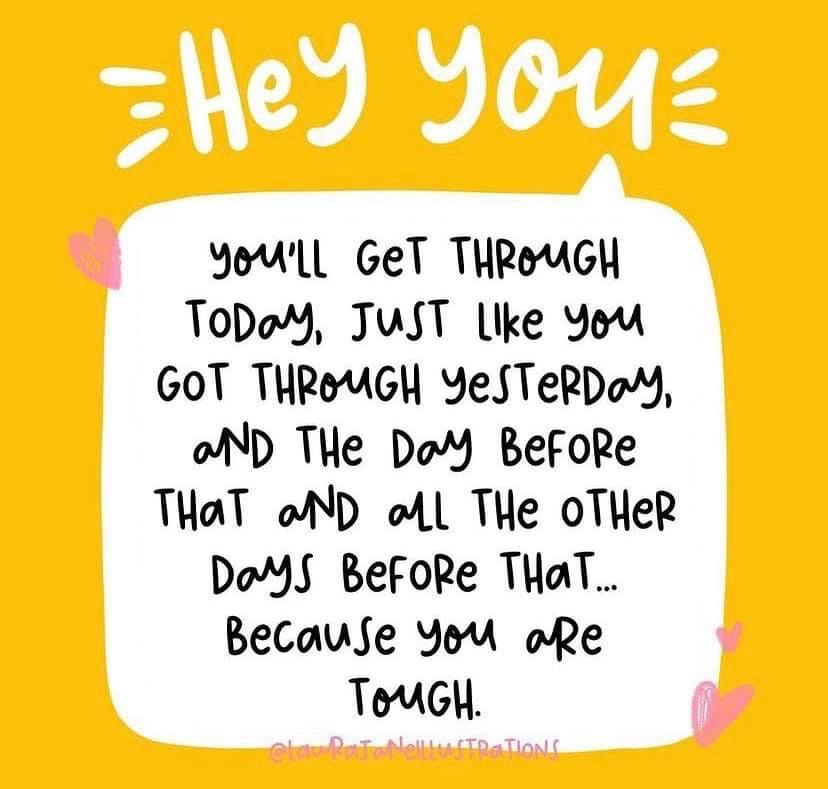 Hey you
you'll GeT THROUGH
TODay, JUST like you
GOT THROUGH yeSTeRDay,
aND THe Day BeFORe
THaT aND all THe OTHeR
Days BeFORe THaT...
Because you aRe
TOUGH.
@lauRaJaNeIllusTRaTIONs